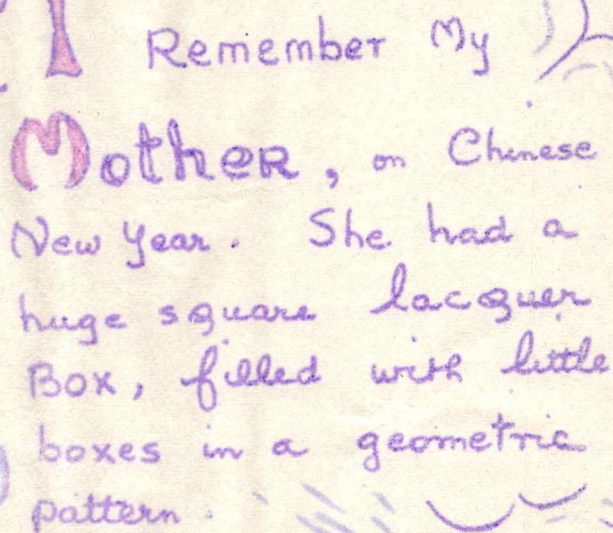 I Remember My
Mother, on Chinese
New Year. She had a
huge square lacquer
Box, filled with little
boxes in a geometric
pattern.